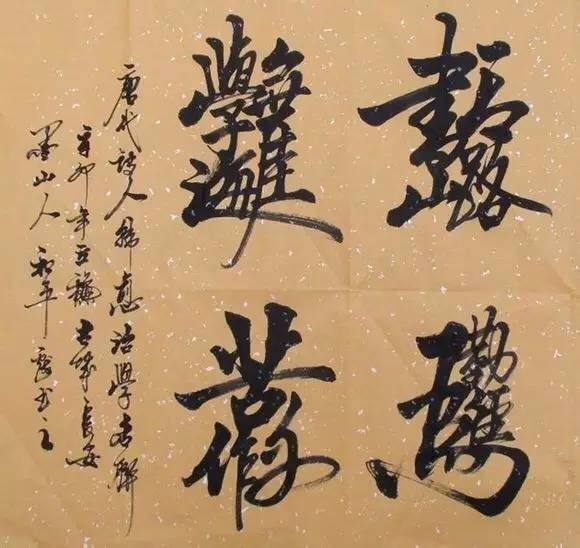 書山有路
勤為徑
學海無涯
苦作舟
唐代詩人韓愈治學名聯
辛卯年穐古城長安
墨山人和平书之